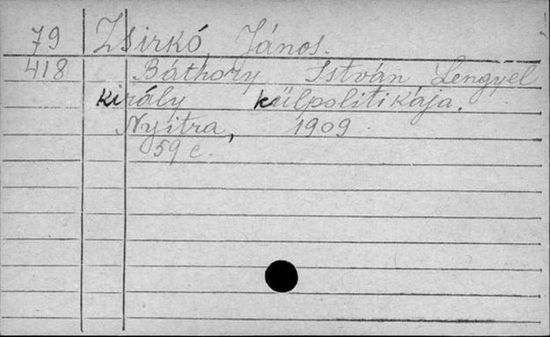 79 Zsirkó, János.
418 Báthory István Lengyel
király külpolitikája.
Nyitra, 1909.
59 c.